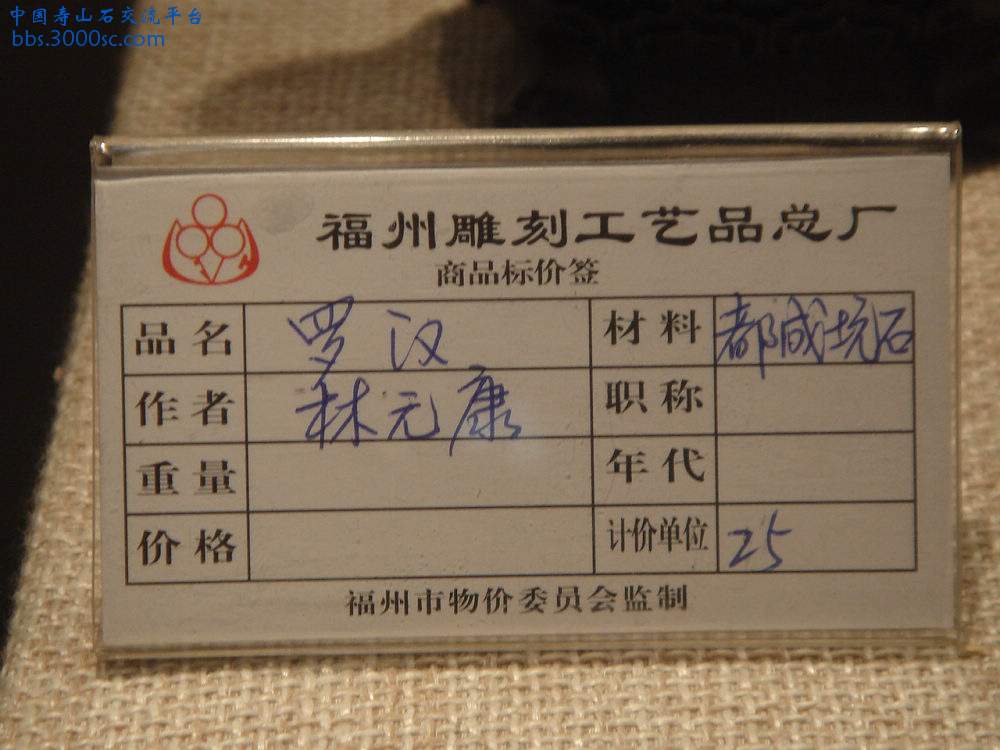 中国寿山石交流平台
bbs.3000sc.com
福州雕刻工艺品总厂
商品标价签
品名 罗汉 材料 都成坑石
作者 林元康 职称
重量 年代
价格 计价单位 25
福州市物价委员会监制